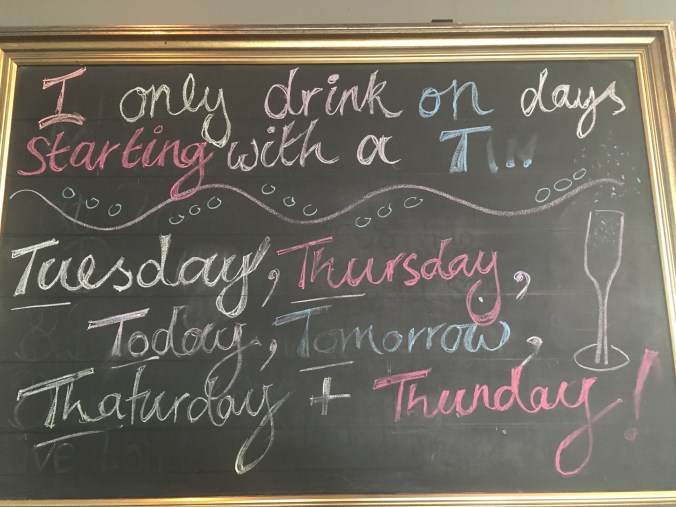 I only drink on days
starting with a T...
Tuesday, Thursday,
Today, Tomorrow,
Thaturday + Thunday!